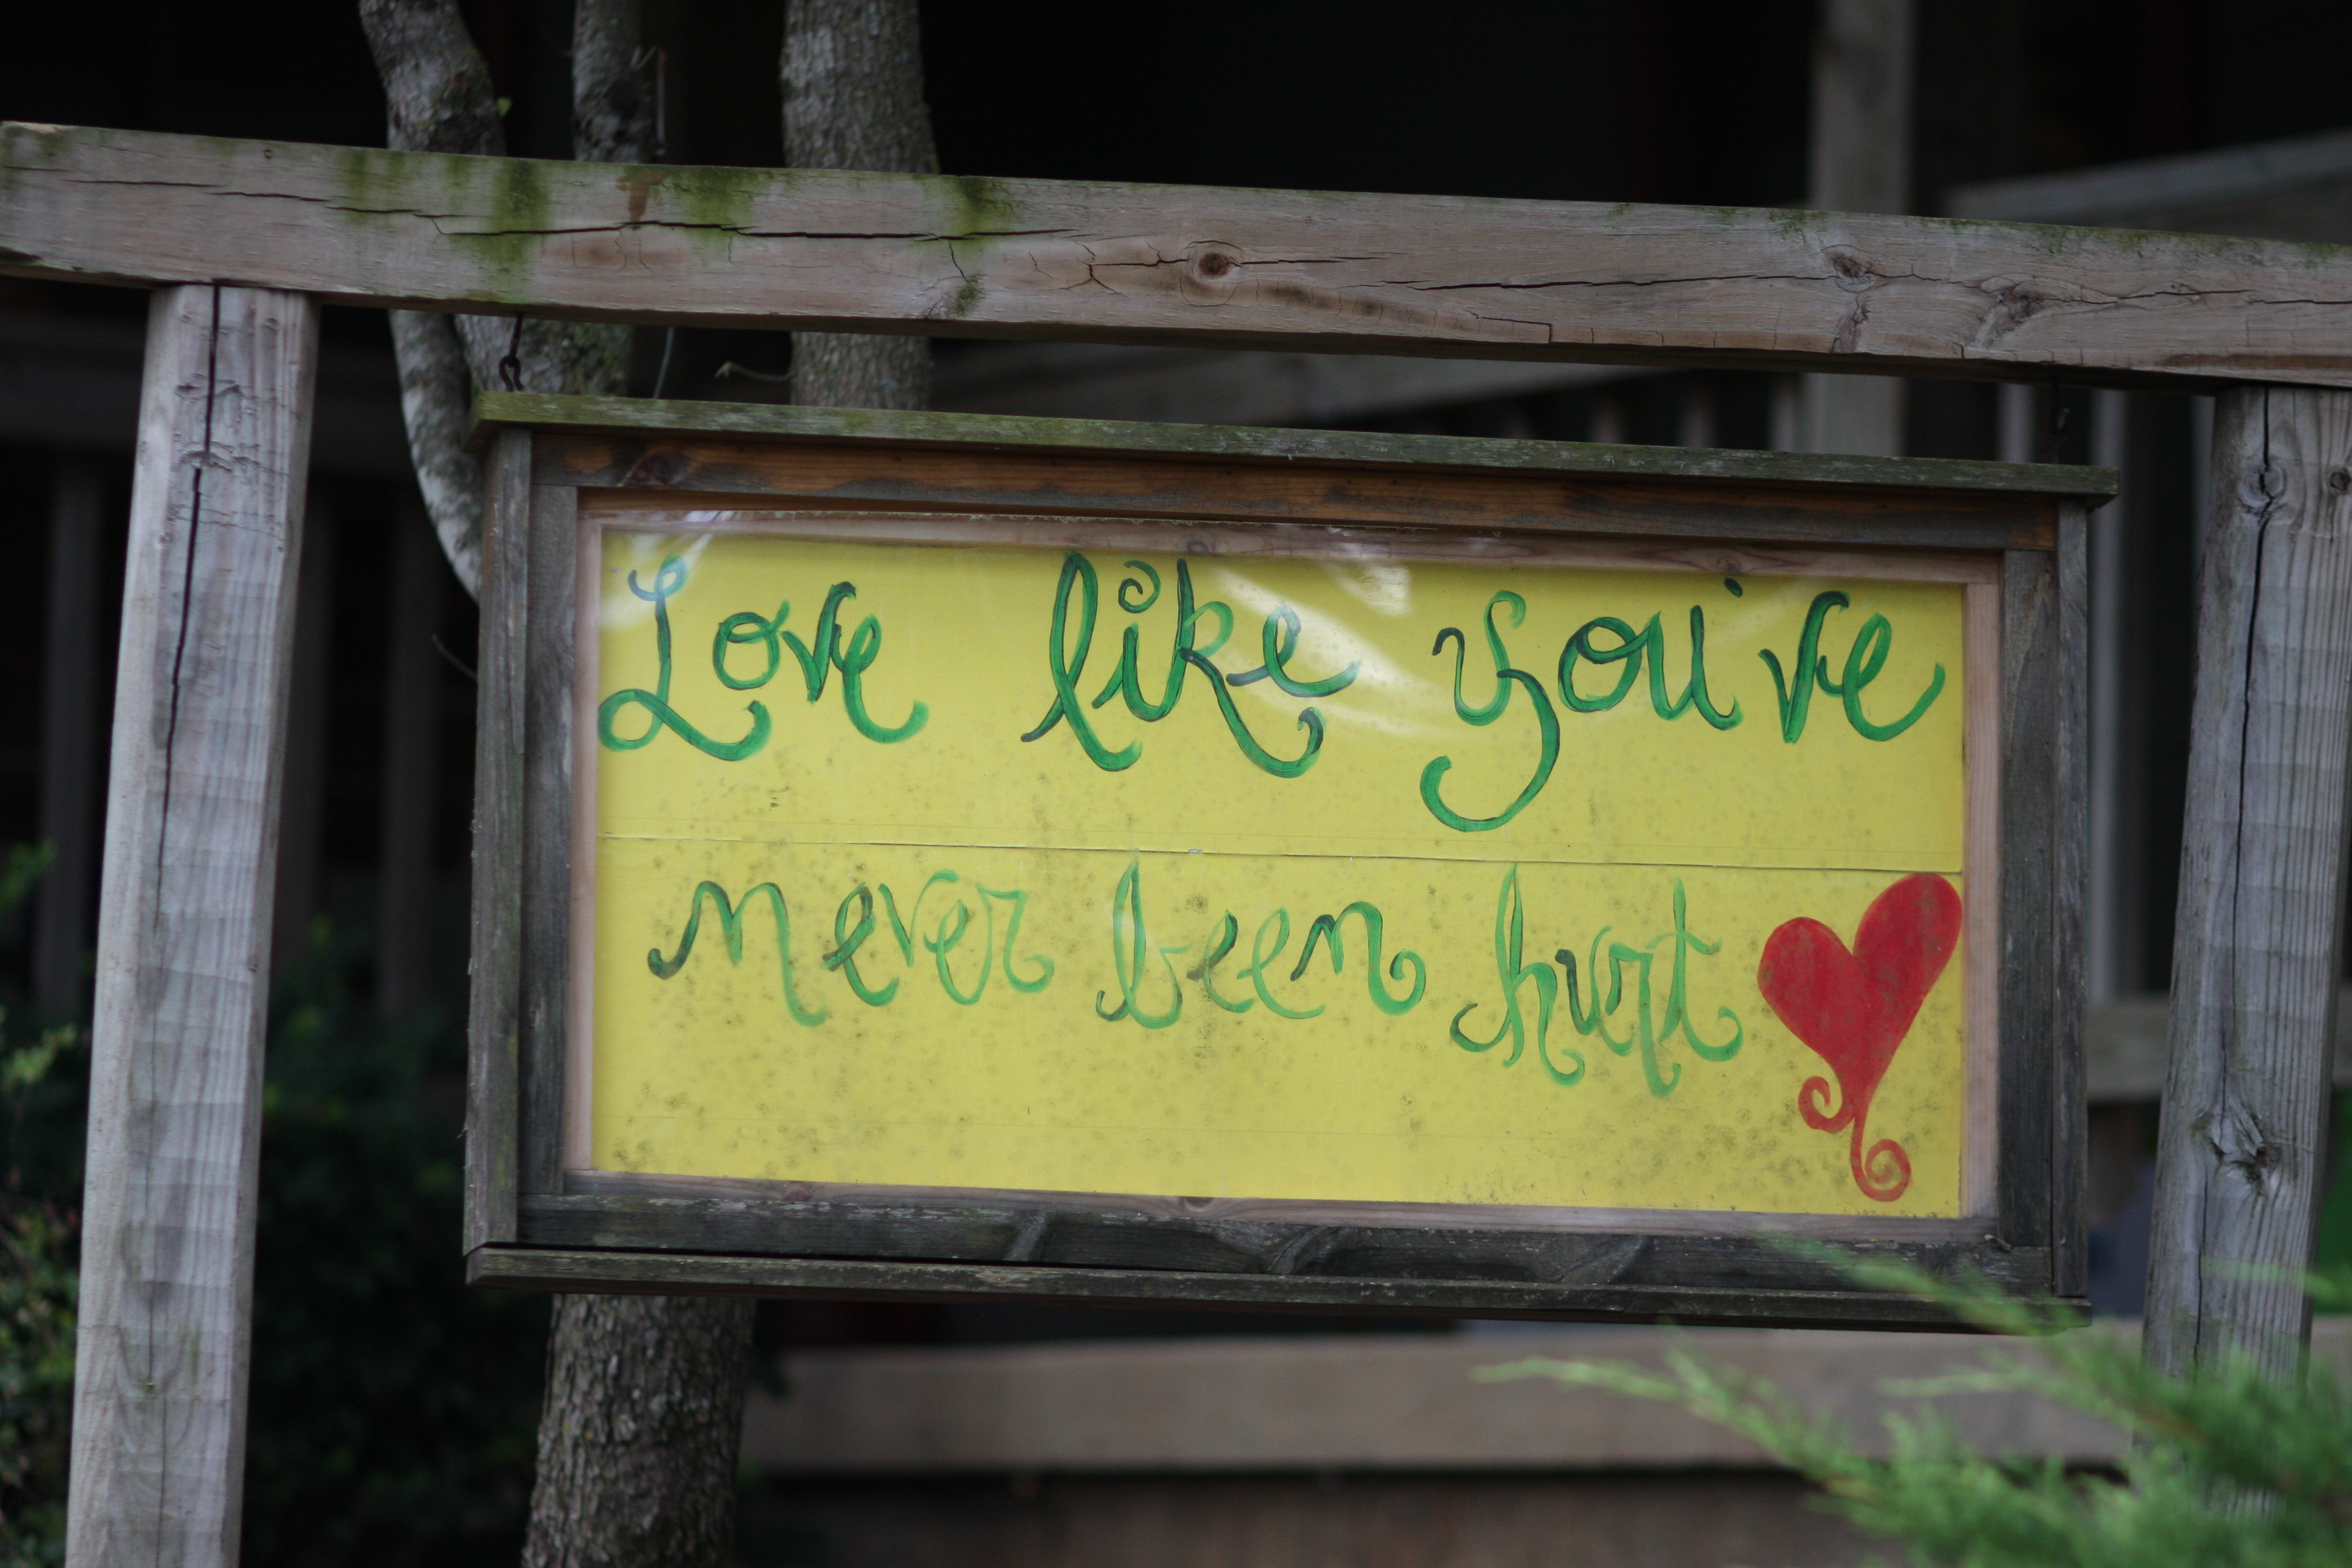 Love like you've
never been hurt